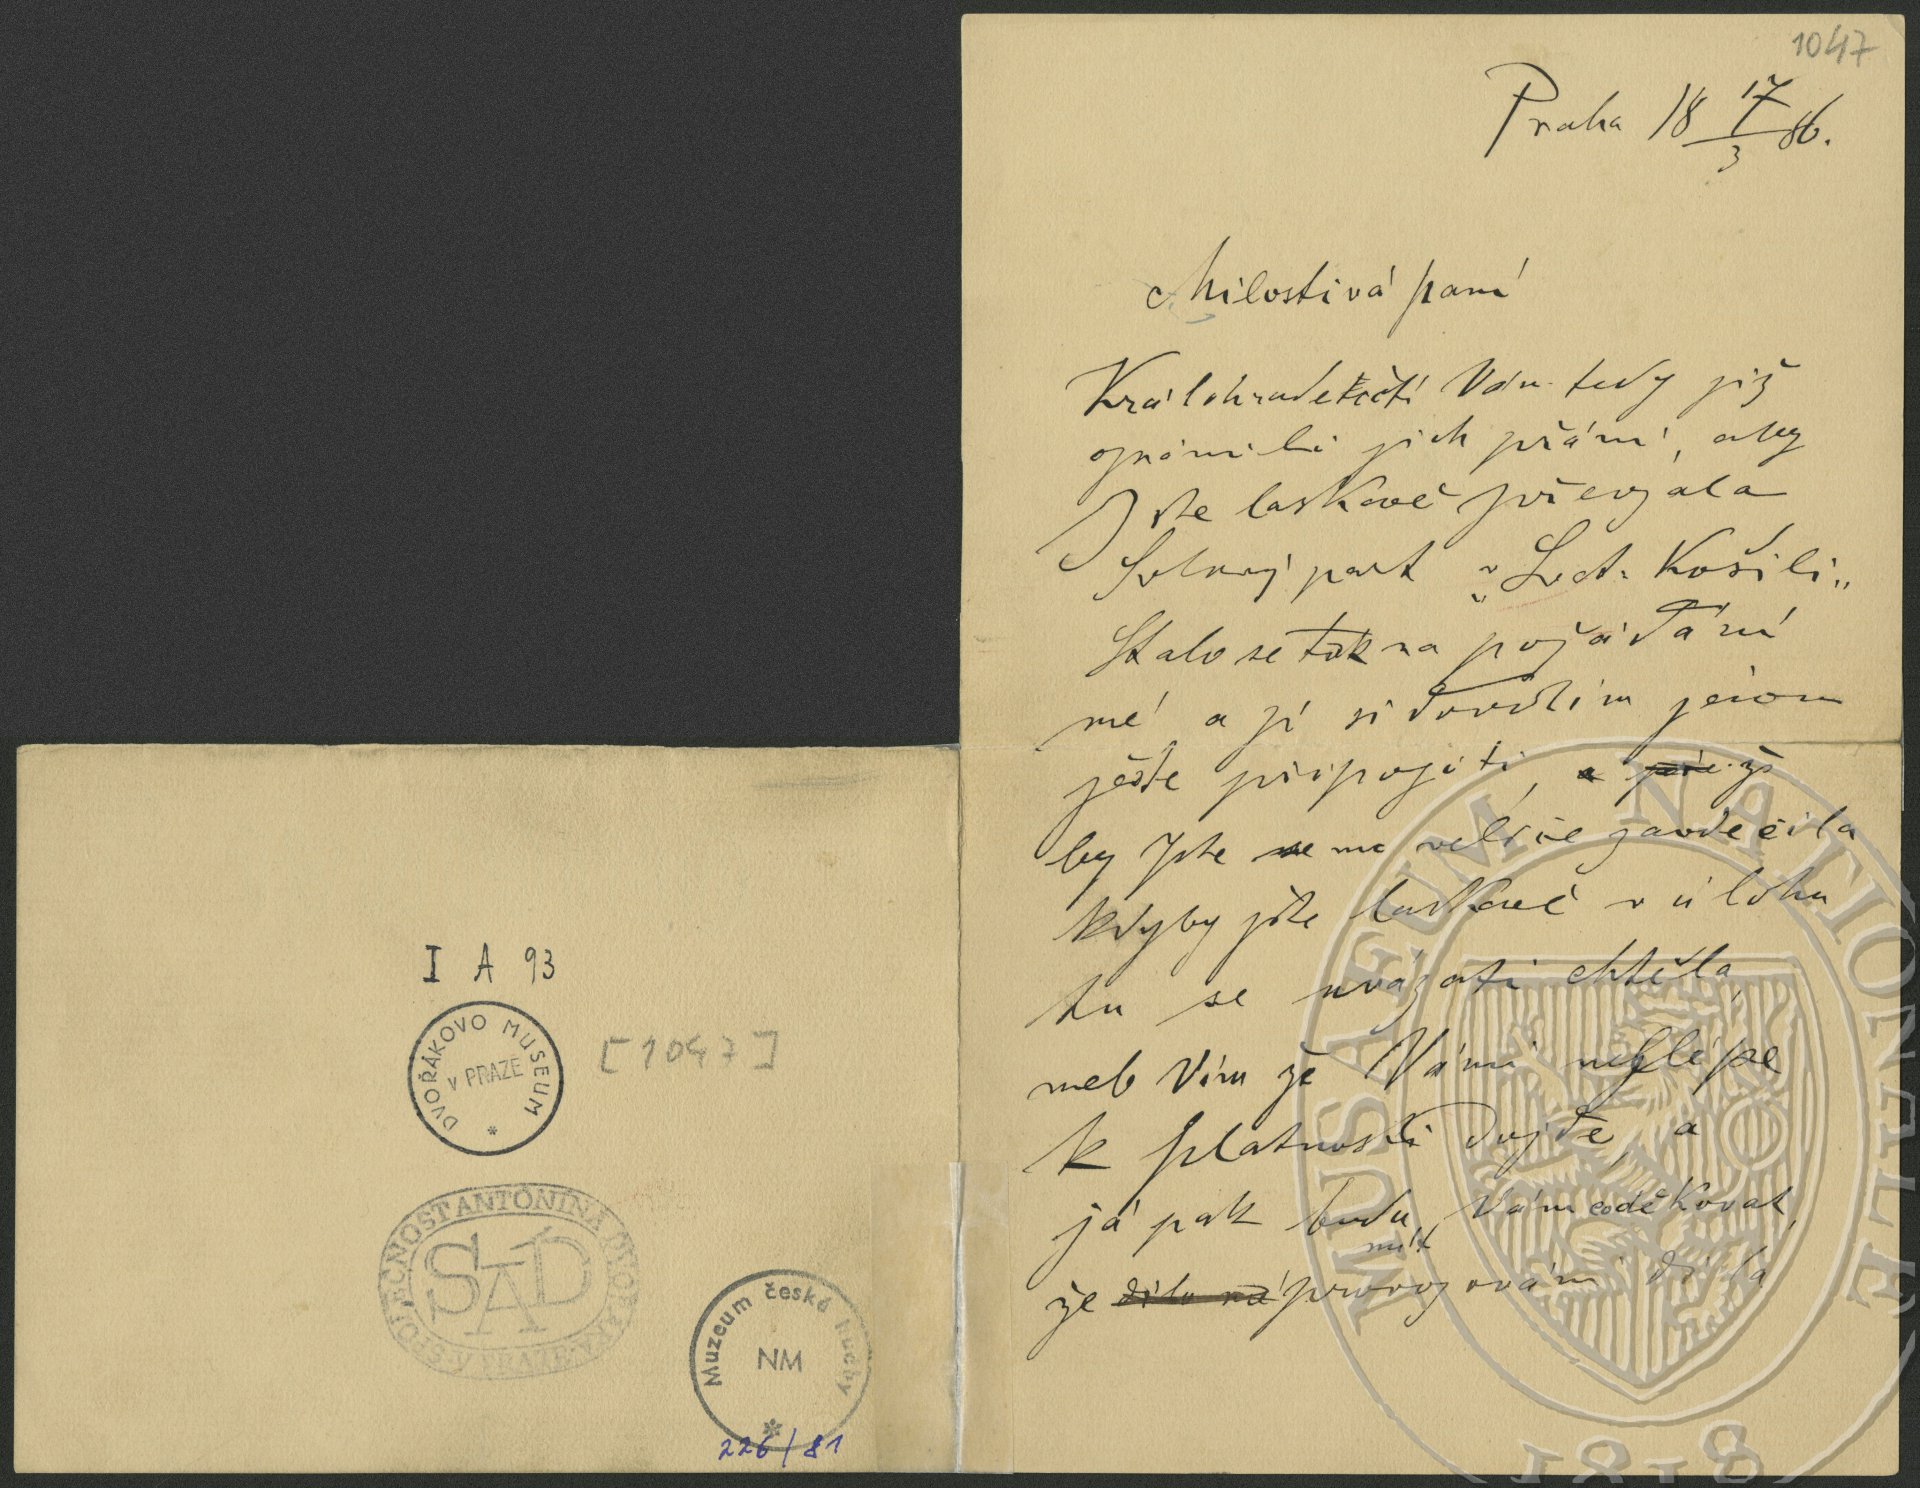 1047
Praha 18 17/3 86.
Milostivá paní
Králohradečtí Vám tedy již
oznámili jich přání, aby
Jste laskavě převzala
Solový part "Svat. Košili"
Stalo se tak na požádání
mé a já si dovolím jenom
ještě připojiti, že
by Jste me velice zavděčila
kdyby jste laskavě v úlohu
tu se uvázati chtěla,
neb Vím že Vámi nejlépe
k platnosti dojde, a
já pak budu mít Vám co děkovat,
že provozování díla
I A 93
DVOŘÁKOVO MUSEUM
V PRAZE
[1047]
SPOLEČNOST ANTONÍNA DVOŘÁKA V PRAZE
SAD
Muzeum české hudby
NM
226/81
MUSAEUM NATIONALE
1818